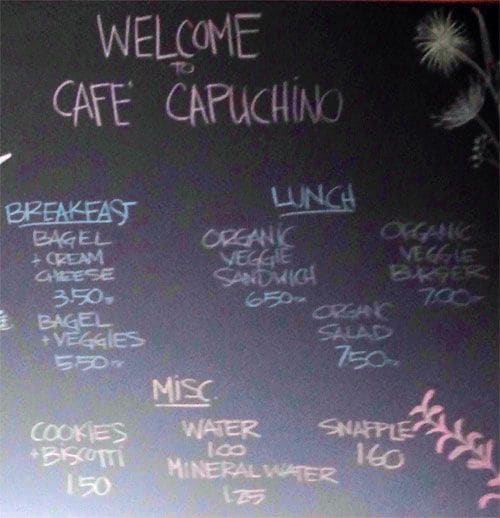 WELCOME
TO
CAFE' CAPUCHINO
BREAKFAST
BAGEL
+ CREAM
CHEESE
3.50
BAGEL
+ VEGGIES
5.50
LUNCH
ORGANIC
VEGGIE
SANDWICH
6.50
ORGANIC
VEGGIE
BURGER
7.00
ORGANIC
SALAD
7.50
MISC.
COOKIES
+ BISCOTTI
1.50
WATER
1.00
MINERAL WATER
1.25
SNAPPLE
1.60